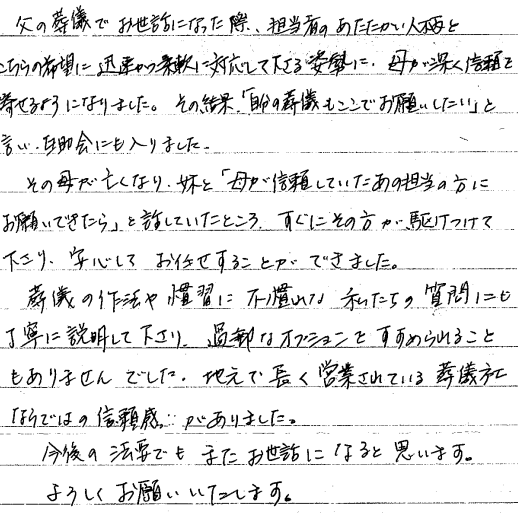 父の葬儀でお世話になった際、担当者のあたたかい人柄と
こちらの希望に迅速かつ柔軟に対応して下さる姿勢に、母が深く信頼を
寄せるようになりました。その結果、「自分の葬儀もここでお願いしたい」と
言い、互助会にも入りました。
その母が亡くなり、妹と「母が信頼していたあの担当の方に
お願いできたら」と話していたところ、すぐにその方が駆けつけて
下さり、安心してお任せすることができました。
葬儀の作法や慣習に不慣れな私たちの質問にも
丁寧に説明して下さり、過剰なオプションをすすめられること
もありませんでした。地元で長く営業されている葬儀社
ならではの信頼感がありました。
今後の法要でもまたお世話になると思います。
よろしくお願いいたします。